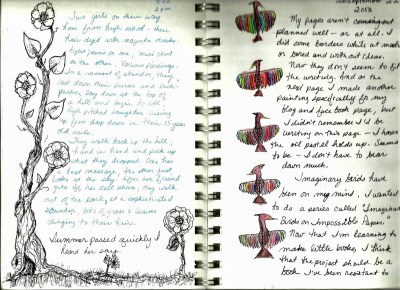 Two girls on their way
home from high school - their
hair dyed with magenta streaks.
tight jeans on one, mini skirt
on the other. Various piercings.
In a moment of abandon, they
set down their purses and back
packs, lay down at the top of
a hill and begin to roll,
high pitched laughter rising
up from deep down in their 15 year
old
They walk back up the hill,
hand in hand and pick up
what they dropped. One has
a text message, the other just
looks at the sky. After her friend
puts off her cell phone, they walk
out of the park, at a sophisticated
bits of grass & leaves
clinging to their hair.
Summer passed quickly I
heard her say.
September
2013
My pages aren't coming out
planned well - or at all. I
did some borders while at work
or bored and without ideas.
Now they don't seem to fit
the writing. And on the
next page I made another
painting specifically for my
blog and face book page, but
I didn't remember I'd be
writing on this page - I hope
the oil pastel holds up. Seems
to be - I don't have to bear
down much.
Imaginary birds have
been on my mind. I wanted
to do a series called "Imaginary
Birds on Impossible Paper."
Now that I'm learning to
make little books I think
that the project should be a
book. I've been resistant to